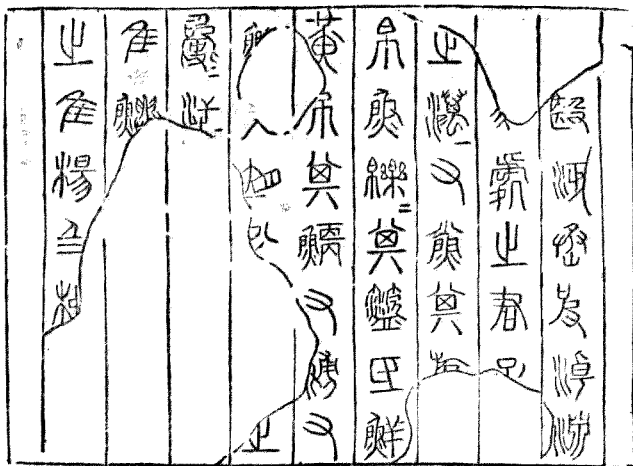 殹沔丞皮淖淵
處之君子
之澫又鯊其斿
帛魚皪=其盜氐鮮
黃帛其鯿又鰟又
之
隹鱮
之隹楊及柳